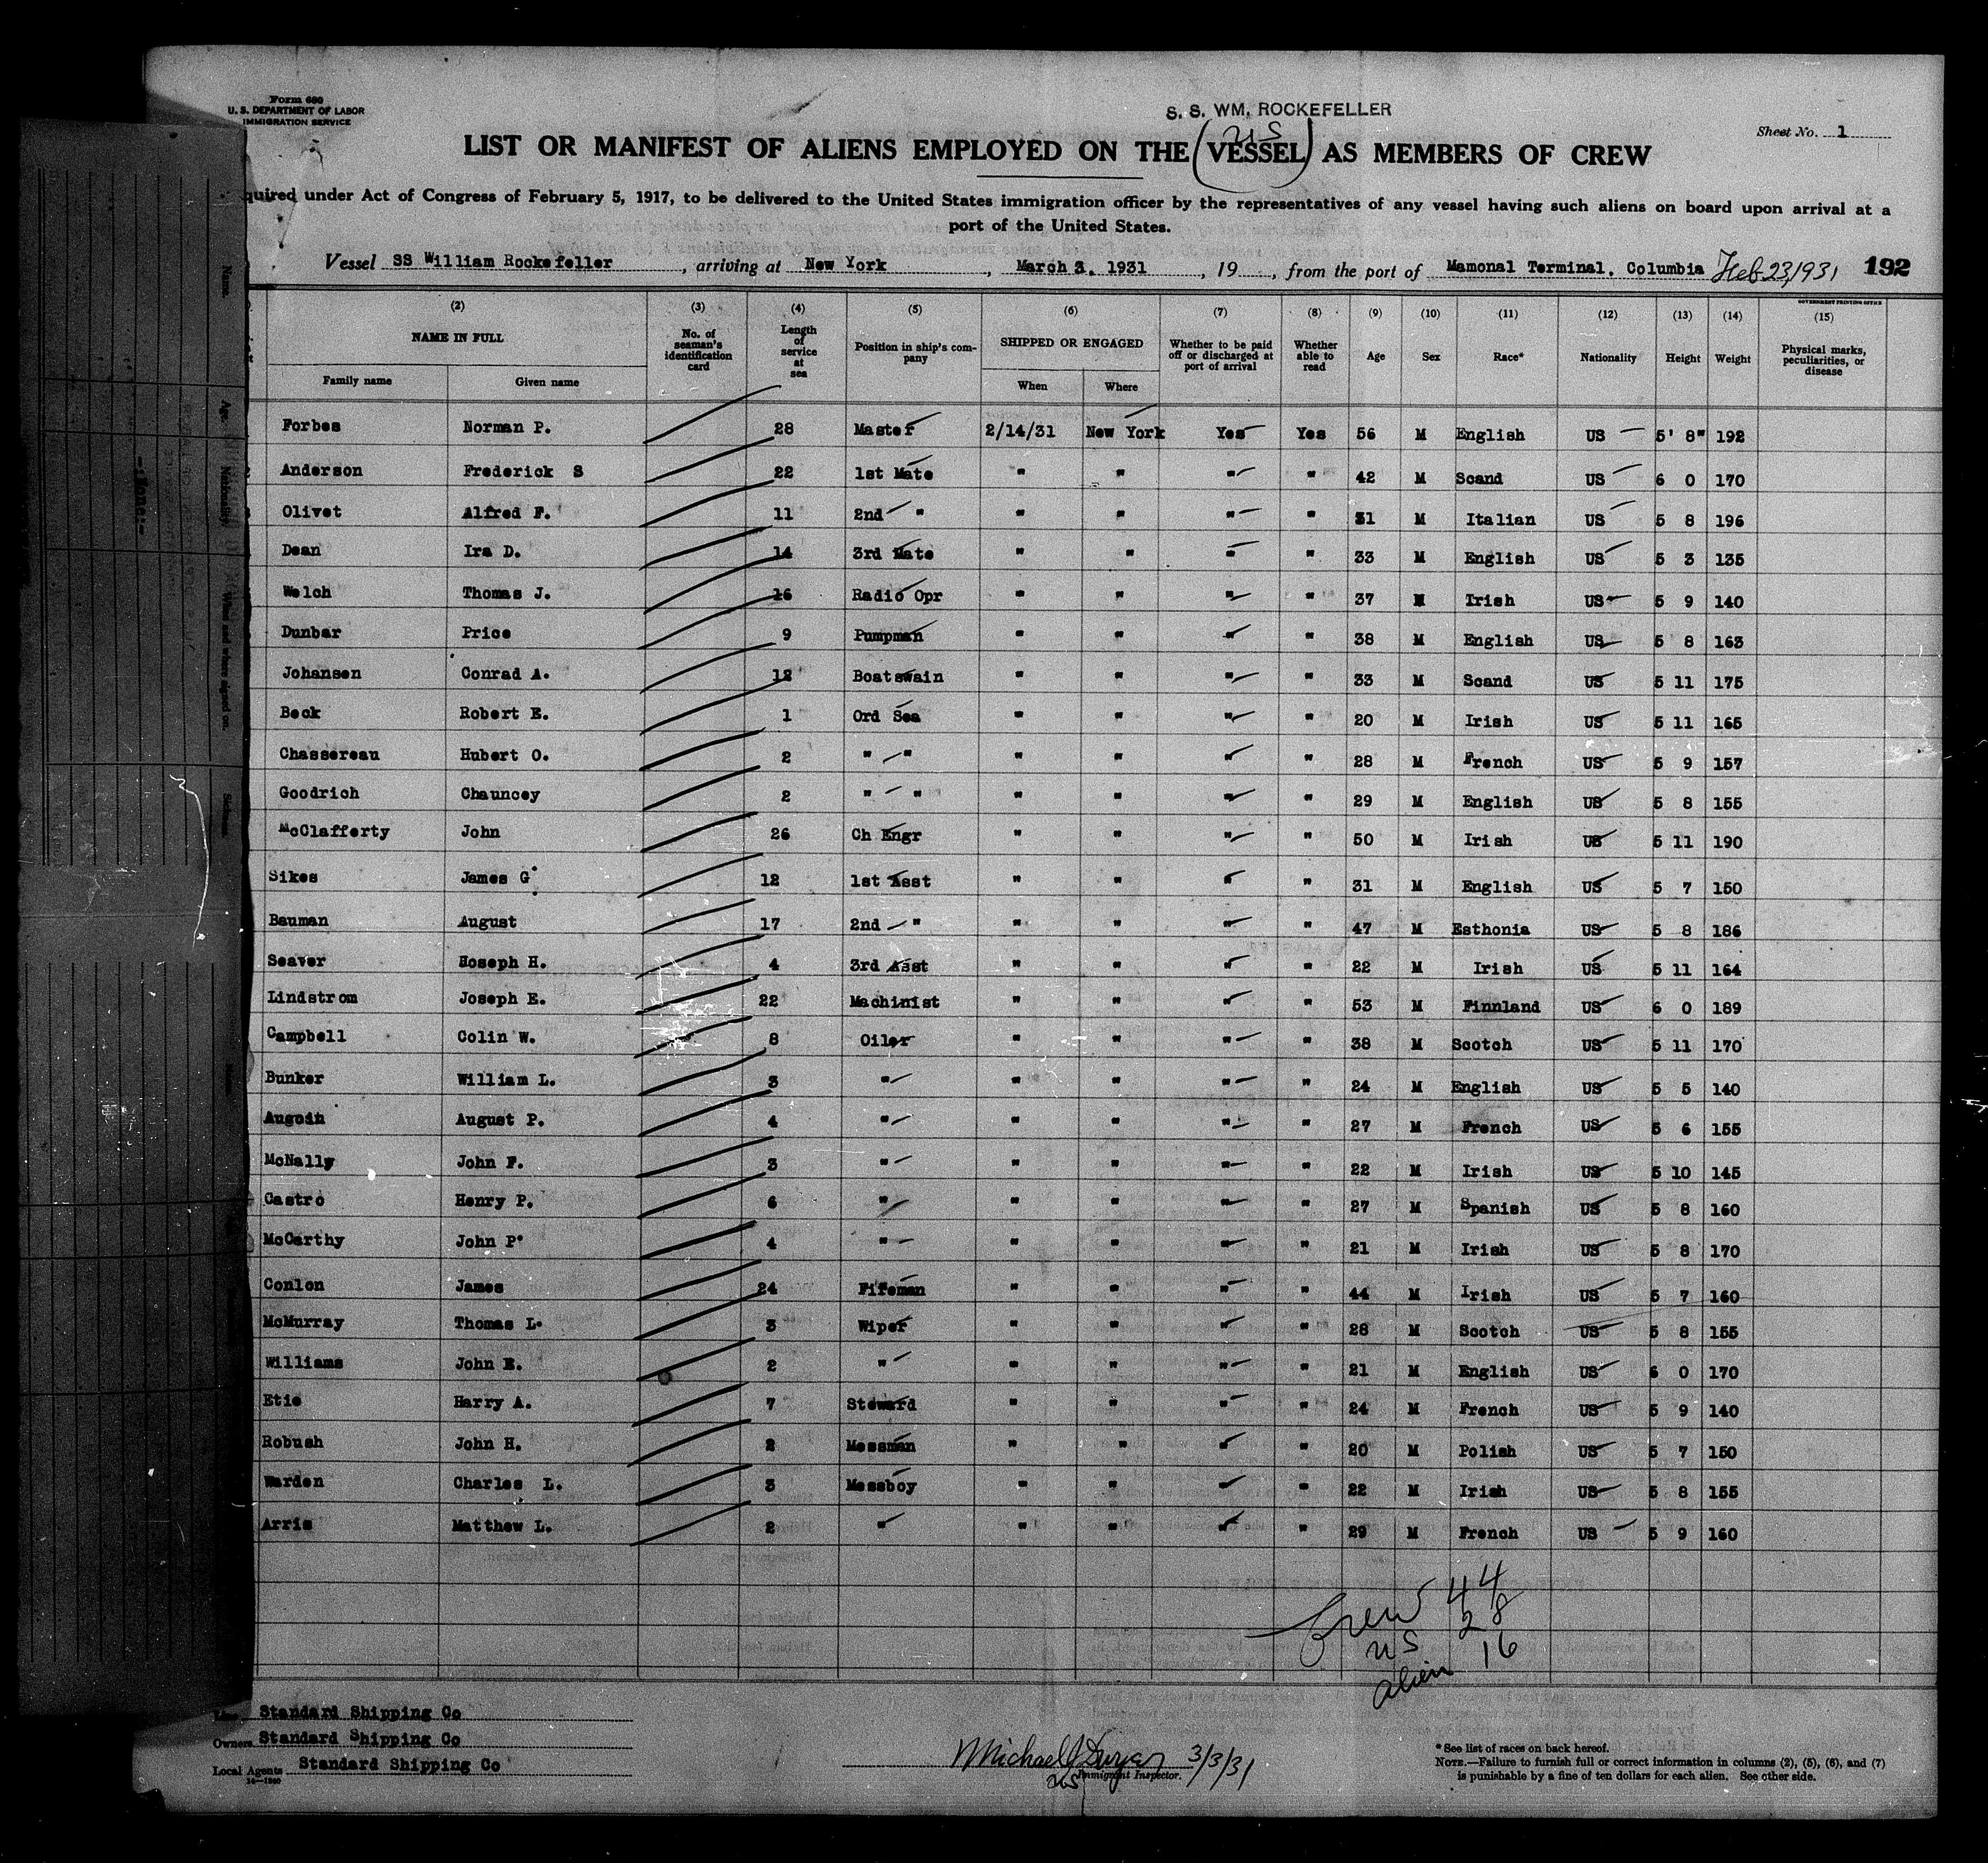 Form 680
U. S. DEPARTMENT OF LABOR
IMMIGRATION SERVICE
S. S. WM. ROCKEFELLER
Sheet No. 1
US
LIST OR MANIFEST OF ALIENS EMPLOYED ON THE (VESSEL) AS MEMBERS OF CREW
quired under Act of Congress of February 5, 1917, to be delivered to the United States immigration officer by the representatives of any vessel having such aliens on board upon arrival at a
port of the United States.
Vessel SS William Rockefeller, arriving at New York, March 3, 1931, 19, from the port of Mamonal Terminal, Columbia Feb 23, 1931 192
GOVERNMENT PRINTING OFFICE
(2) (3) (4) (5) (6) (7) (8) (9) (10) (11) (12) (13) (14) (15)
NAME IN FULL No. of seaman's identification card Length of service at sea Position in ship's company SHIPPED OR ENGAGED Whether to be paid off or discharged at port of arrival Whether able to read Age Sex Race* Nationality Height Weight Physical marks, peculiarities, or disease
Family name Given name When Where
Forbes Norman P. 28 Master 2/14/31 New York Yes Yes 56 M English US 5' 8" 192
Anderson Frederick S 22 1st Mate " " " " 42 M Scand US 6 0 170
Olivet Alfred F. 11 2nd " " " " " 31 M Italian US 5 8 196
Dean Ira D. 14 3rd Mate " " " " 33 M English US 5 3 135
Welch Thomas J. 16 Radio Opr " " " " 37 M Irish US 5 9 140
Dunbar Price 9 Pumpman " " " " 38 M English US 5 8 163
Johansen Conrad A. 12 Boatswain " " " " 33 M Scand US 5 11 175
Beck Robert E. 1 Ord Sea " " " " 20 M Irish US 5 11 165
Chassereau Hubert O. 2 " " " " " " 28 M French US 5 9 157
Goodrich Chauncey 2 " " " " " " 29 M English US 5 8 155
McClafferty John 26 Ch Engr " " " " 50 M Irish US 5 11 190
Sikes James G. 12 1st Asst " " " " 31 M English US 5 7 150
Bauman August 17 2nd " " " " " 47 M Esthonia US 5 8 186
Seaver Hoseph H. 4 3rd Asst " " " " 22 M Irish US 5 11 164
Lindstrom Joseph E. 22 Machinist " " " " 53 M Finnland US 6 0 189
Campbell Colin W. 8 Oiler " " " " 38 M Scotch US 5 11 170
Bunker William L. 3 " " " " " 24 M English US 5 5 140
Augoin August P. 4 " " " " " 27 M French US 5 6 155
McNally John F. 3 " " " " " 22 M Irish US 5 10 145
Castro Henry P. 6 " " " " " 27 M Spanish US 5 8 160
McCarthy John P. 4 " " " " " 21 M Irish US 5 8 170
Conlon James 24 Fireman " " " " 44 M Irish US 5 7 160
McMurray Thomas L. 3 Wiper " " " " 28 M Scotch US 5 8 155
Williams John E. 2 " " " " " 21 M English US 6 0 170
Etie Harry A. 7 Steward " " " " 24 M French US 5 9 140
Robush John H. 2 Messman " " " " 20 M Polish US 5 7 150
Warden Charles L. 3 Messboy " " " " 22 M Irish US 5 8 155
Arris Matthew L. 2 " " " " " 29 M French US 5 9 160
Crew 44
US 28
alien 16
Line Standard Shipping Co
Owners Standard Shipping Co
Local Agents Standard Shipping Co
Michael J Dwyer 3/3/31
US Immigrant Inspector.
* See list of races on back hereof.
NOTE.—Failure to furnish full or correct information in columns (2), (5), (6), and (7)
is punishable by a fine of ten dollars for each alien. See other side.